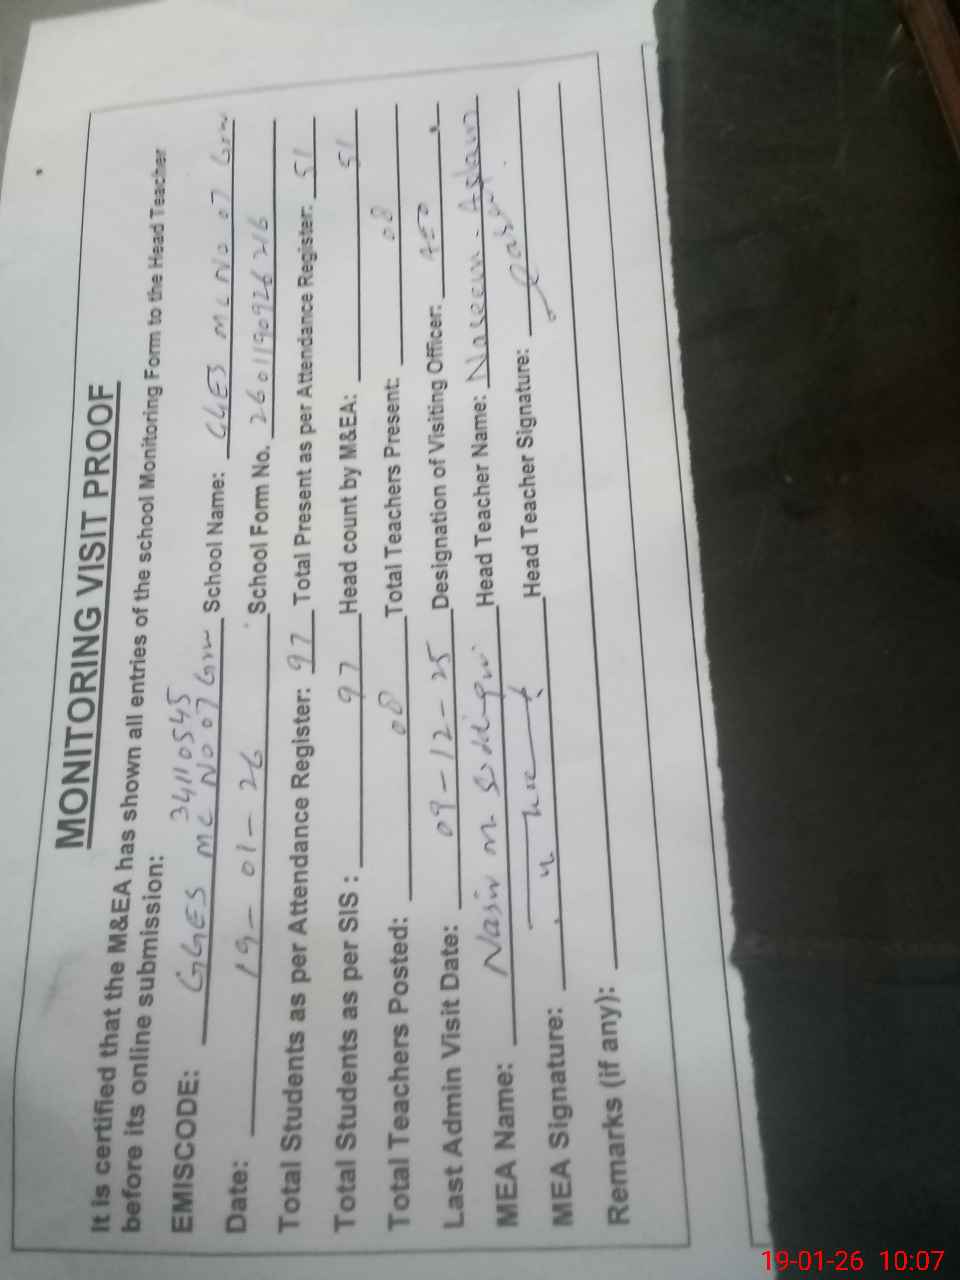 MONITORING VISIT PROOF
It is certified that the M&EA has shown all entries of the school Monitoring Form to the Head Teacher
before its online submission:
34110545
EMISCODE: GGES MC NO 07 Grw School Name: GGES MC NO 07 Grw
Date: 19-01-26 School Form No. 2601190926216
Total Students as per Attendance Register: 97 Total Present as per Attendance Register: 51
Total Students as per SIS : 97 Head count by M&EA: 51
Total Teachers Posted: 08 Total Teachers Present: 08
Last Admin Visit Date: 09-12-25 Designation of Visiting Officer: AEO
MEA Name: Nasir m Siddiqui Head Teacher Name: Naseem Aslam
MEA Signature: Head Teacher Signature:
Remarks (if any):
19-01-26 10:07